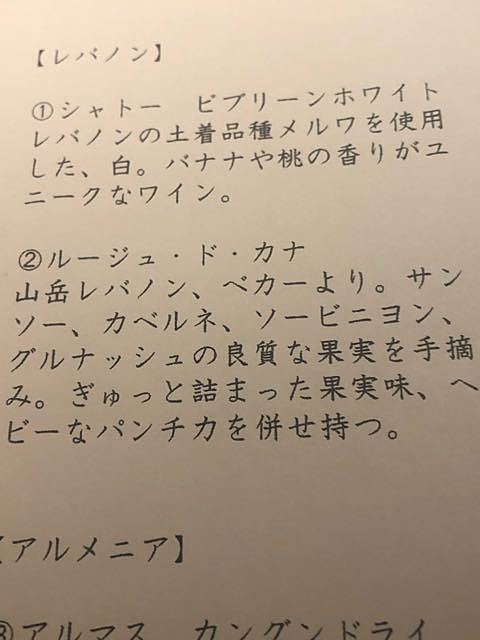 【レバノン】
①シャトー　ビブリーンホワイト
レバノンの土着品種メルワを使用
した、白。バナナや桃の香りがユ
ニークなワイン。
②ルージュ・ド・カナ
山岳レバノン、ベカーより。サン
ソー、カベルネ、ソービニヨン、
グルナッシュの良質な果実を手摘
み。ぎゅっと詰まった果実味、ヘ
ビーなパンチ力を併せ持つ。
【アルメニア】
③アルマス　カングンドライ